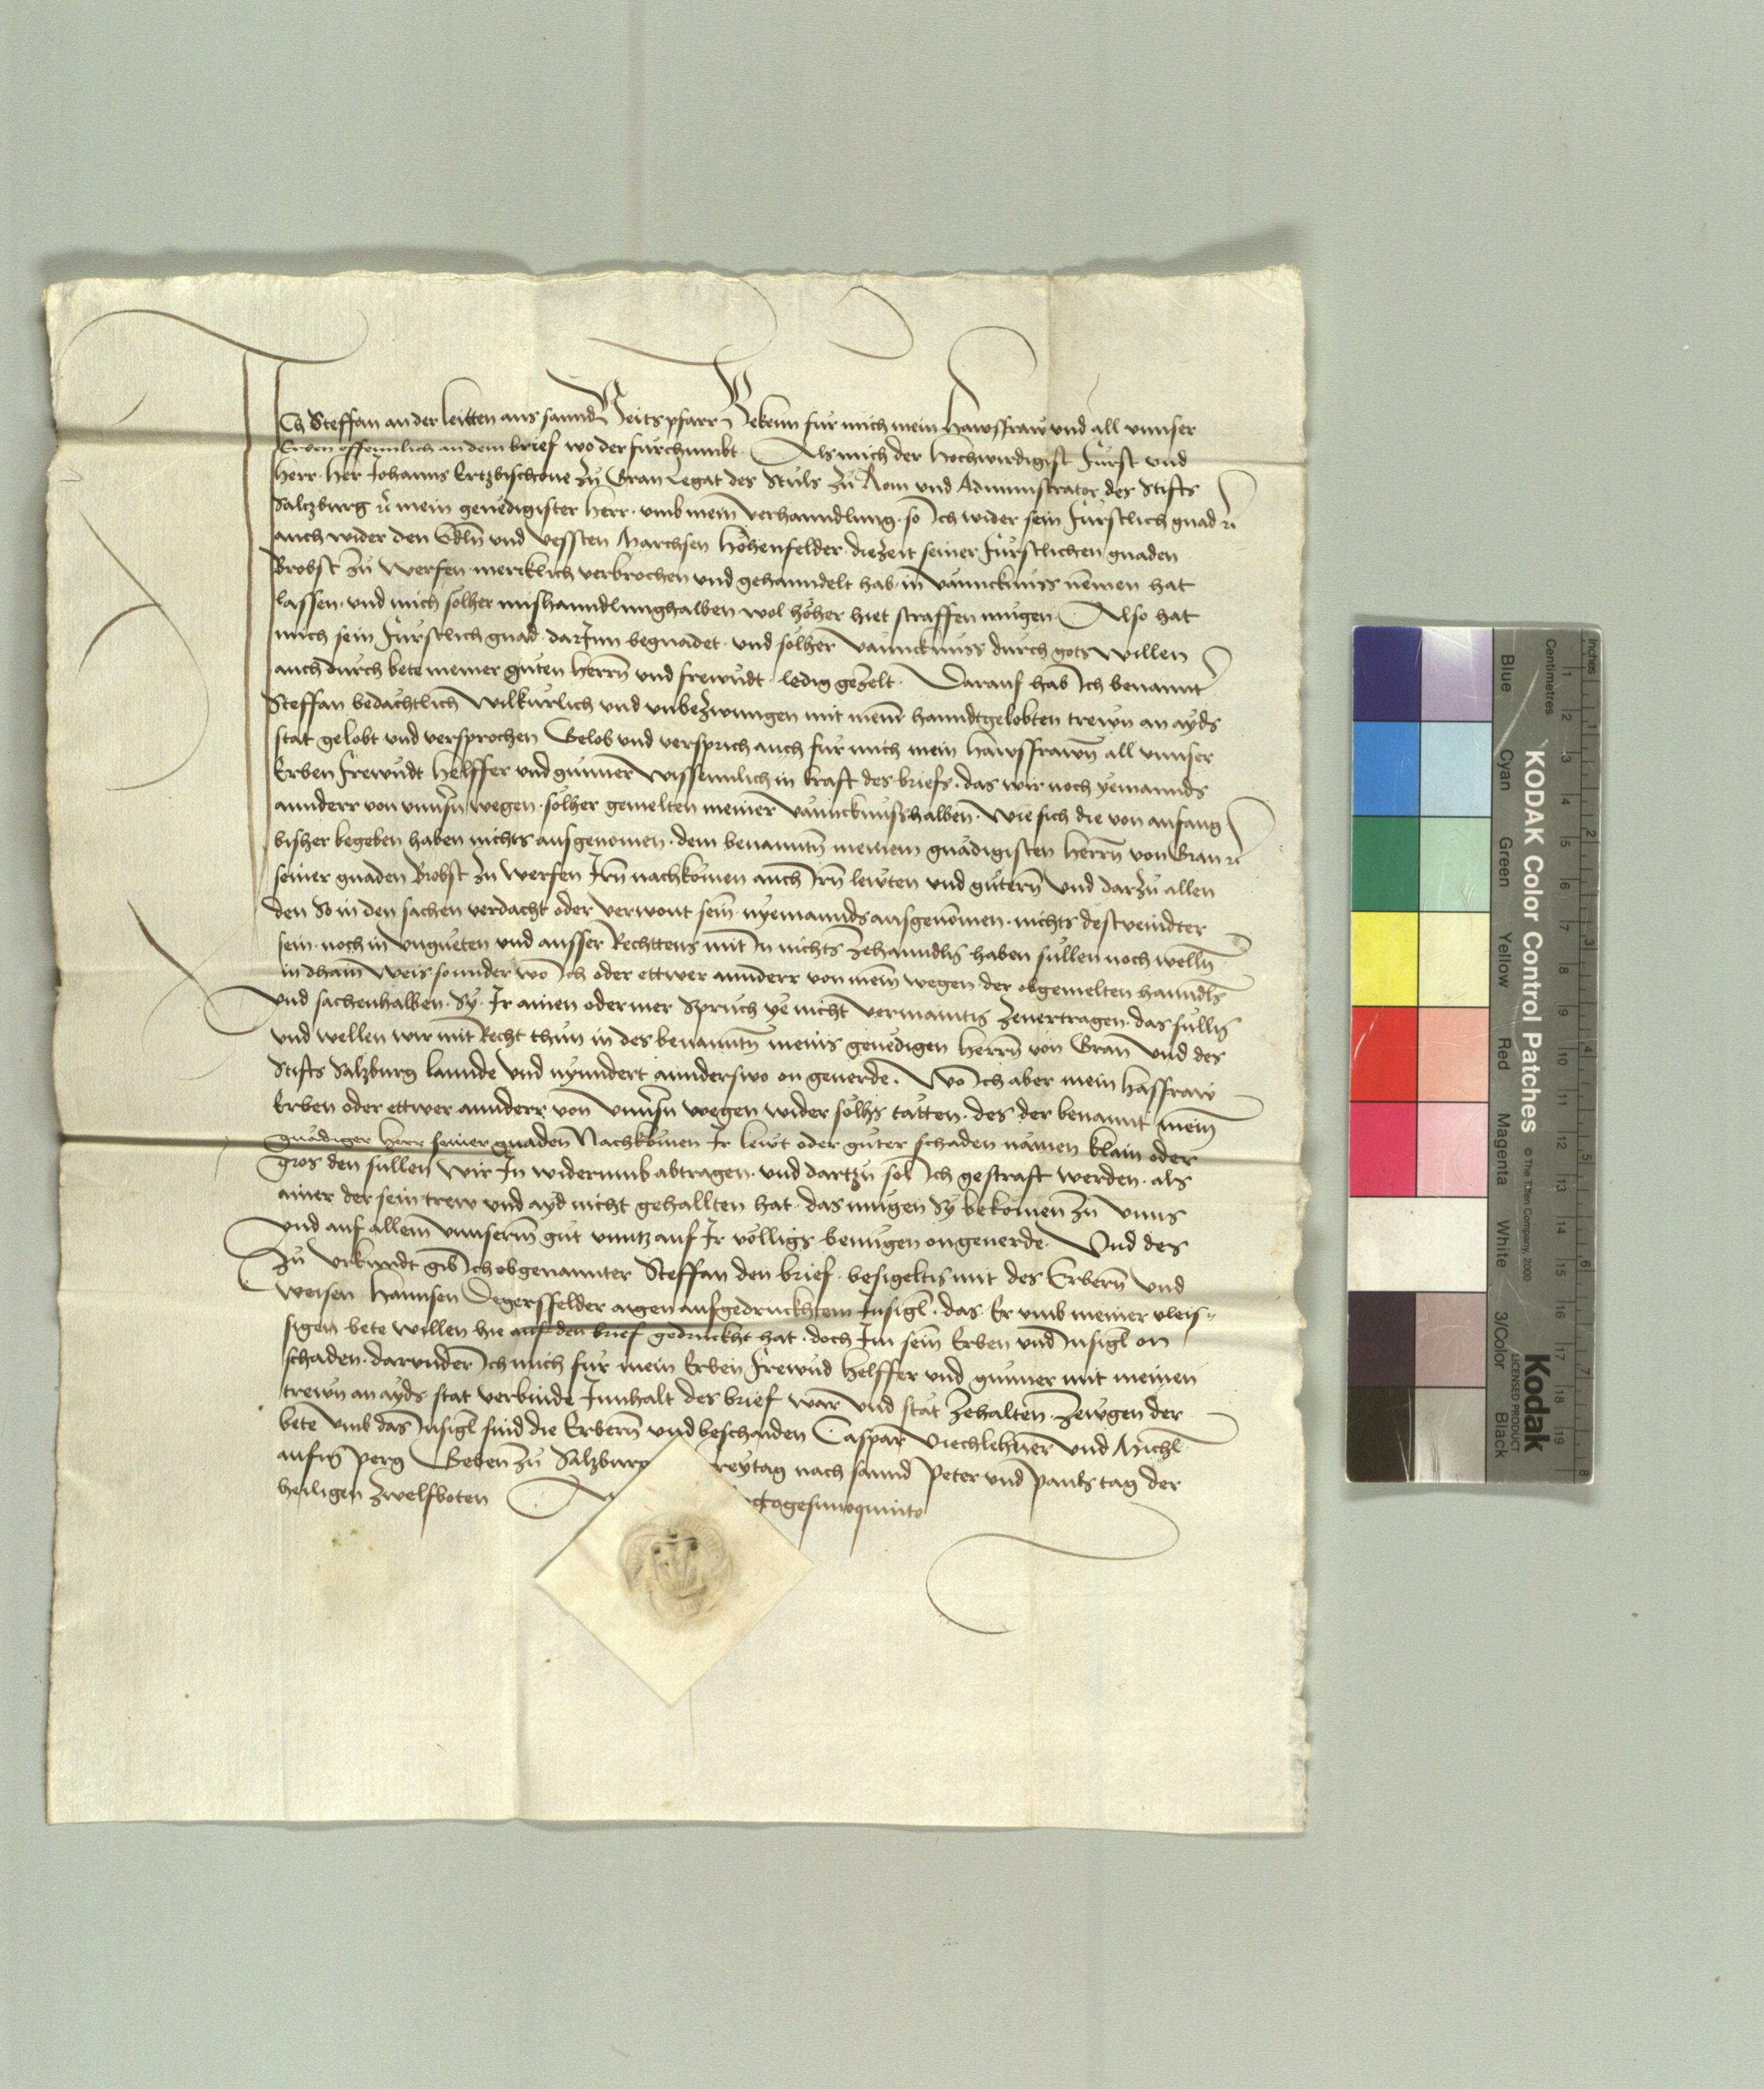 Ich Steffan an der leitten aus sannd Veits pfarr Bekenn für mich mein hawsfraw und all unnser
Erben offennlich an dem brief wo der fürchumbt. Als mich der hochwirdigist Fürst und
herr her Johanns Ertzbischoue zu Gran Legat des Stuls zu Rom und Administrator des Stifts
Saltzburg rc mein genedigister herr umb mein verhanndlung so Ich wider sein Fürstlich gnad rc
auch wider den Edln und vessten Harchsen Höhenfelder die zeit seiner Fürstlichen gnaden
Brobst zu Werfen mercklich verbrochen und gehanndelt hab in vannckuuss nemen hat
lassen und mich solher mishanndlunghalben wol höher hiet straffen mugen Also hat
mich sein Fürstlich gnad darInn begnadet und solher vannckuuss durch gots willen
auch durch bete meiner guten herrn und frewndt ledig gezelt. Darauf hab Ich benannt
Steffan bedächtlich wilkurlich und unbezwungen mit meinn hanndtgelobten trewn an ayds
stat gelobt und versprochen Gelob und versprich auch für mich mein hawsfrawn all unnser
Erben Frewndt helffer und gunner wissenntlich in kraft des briefs das wir noch yemannds
annderr von unnsrn wegen solher gemelten meiner vannckuusshalben wie sich die von anfang
bisher begeben haben nichts ausgenomen dem benanntn meinem gnädigisten herrn von Gran rc
seiner gnaden Brobst zu Werfen Irn nachkomen auch Irn lewten und gutern und darzu allen
den So in den sachen verdacht oder verwont sein nyemannds ausgenomen nichts dest veindter
sein noch in unguten und ausser Rechttens mit In nichts zehanndln haben sullen noch welln
in dhain weis sonnder wo Ich oder ettwer annderr von mein wegen der obgemelten hanndls
und sachenhalben Sy Ir ainen oder mer Spruch ye nicht vermainten zeuertragen das sullen
und wellen wir mit Recht thun in des benanntn meins genedigen herrn von Gran und des
Stifts Salzburg lannde und nynndert annderswo on geuerde. Wo Ich aber mein hassfraw
Erben oder ettwer annderr von unnsrn wegen wider solhs tätten des der benannt mein
gnädiger herr seiner gnaden Nachkomen Ir lewt oder guter schaden nämen klain oder
gros den sullen wir In widerumb abtragen und dartzu sol Ich gestraft werden als
ainer der sein trew und ayd nicht gehallten hat das mugen Sy bekomen zu unns
und auf allem unnserm gut unntz auf Ir völligs benugen ongeuerde. Und des
zu urkundt gib Ich obgenannter Steffan den brief besigelten mit des Erbern und
weisen Hannsen Degersfelder aigen aufgedruckhtem Insigl das Er umb meiner vleis-
sigen bete willen hie auf den brief gedruckht hat doch Im sein Erben und Insigl on
schaden darunder Ich mich für mein Erben Frewnd helffer und gunner mit meinen
trewn an ayds stat verbinde Innhalt des brief war und stät zehalten. Zewgen der
bete umb das Insigl sind die Erbern und beschaiden Caspar Viechlehner und Michl
aufm perg Geben zu Salzburg reytag nach sannd Peter und Pauls tag der
heiligen zwelfboten ctogesimoquinto
KODAK Color Control Patches © The Tiffen Company, 2000 Kodak LICENSED PRODUCT
Inches 1 2 3 4 5 6 7 8
Centimetres 1 2 3 4 5 6 7 8 9 10 11 12 13 14 15 16 17 18 19
Blue Cyan Green Yellow Red Magenta White 3/Color Black